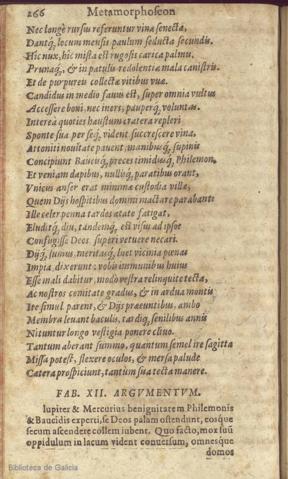 266 Metamorphoseon
Nec longè rursus referuntur vina senecta,
Dantq́; locum mensis paulum seducta secundis.
Hic nux, hic mista est rugosis carica palmis,
Prunaq́;, & in patulis redolentia mala canistris,
Et de purpureis collectæ vitibus vuæ.
Candidus in medio fauus est, super omnia vultus
Accessere boni, nec iners, pauperq́; voluntas.
Interea quoties haustum cratera repleri
Sponte sua per seq́; vident succrescere vina,
Attoniti nouitate pauent, manibusq́; supinis
Concipiunt Baucisq́; preces timidusq́; Philemon,
Et veniam dapibus, nullisq́; paratibus orant,
Vnicus anser erat minimæ custodia villæ,
Quem Dijs hospitibus domini mactare parabant
Ille celer penna tardos ætate fatigat,
Eluditq́; diu, tandemq́; est visus ad ipsos
Confugisse Deos. superi vetuere necari.
Dijq́; sumus, meritasq́; luet vicinia pœnas
Impia, dixerunt: vobis immunibus huius
Esse mali dabitur, modo vestra relinquite tecta,
Ac nostros comitate gradus, & in ardua montis
Ite simul. parent, & Dijs præeuntibus, ambo
Membra leuant baculis, tardiq́; senilibus annis
Nituntur longo vestigia ponere cliuo.
Tantum aberant summo, quantum semel ire sagitta
Missa potest, flexere oculos, & mersa palude
Cætera prospiciunt, tantum sua tecta manere.
FAB. XII. ARGVMENTVM.
Iupiter & Mercurius benignitatem Philemonis
& Baucidis experti, se Deos palam ostendunt, eosque
secum ascendere collem iubent. Quo facto, mox suū
oppidulum in lacum vident conuersum, omnesque
domos
Biblioteca de Galicia